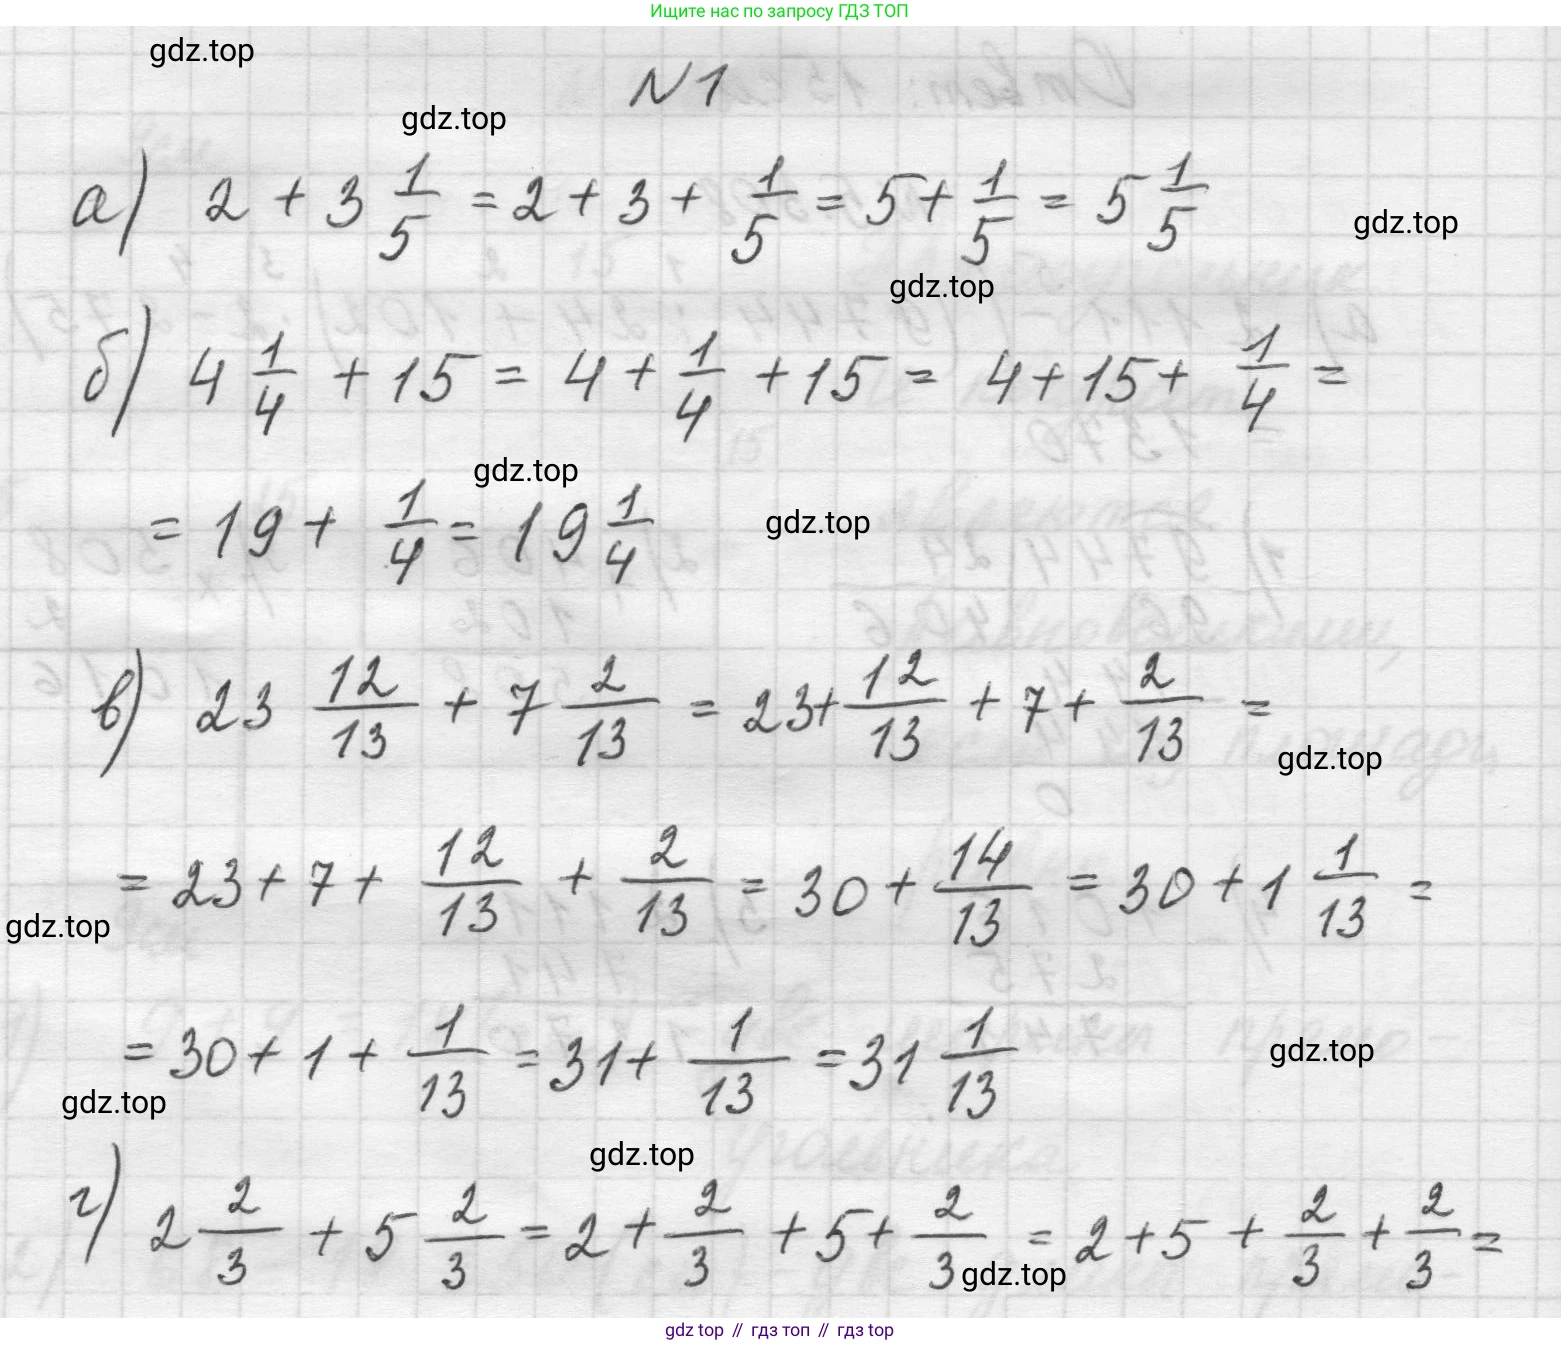 Ищите нас по запросу ГДЗ ТОП
gdz.top
N 1
gdz.top
а) 2 + 3 1/5 = 2 + 3 + 1/5 = 5 + 1/5 = 5 1/5
gdz.top
gdz.top
б) 4 1/4 + 15 = 4 + 1/4 + 15 = 4 + 15 + 1/4 =
gdz.top
= 19 + 1/4 = 19 1/4
gdz.top
в) 23 12/13 + 7 2/13 = 23 + 12/13 + 7 + 2/13 =
gdz.top
= 23 + 7 + 12/13 + 2/13 = 30 + 14/13 = 30 + 1 1/13 =
gdz.top
= 30 + 1 + 1/13 = 31 + 1/13 = 31 1/13
gdz.top
gdz.top
gdz.top
г) 2 2/3 + 5 2/3 = 2 + 2/3 + 5 + 2/3 = 2 + 5 + 2/3 + 2/3 =
gdz.top
gdz top // гдз топ // гдз top